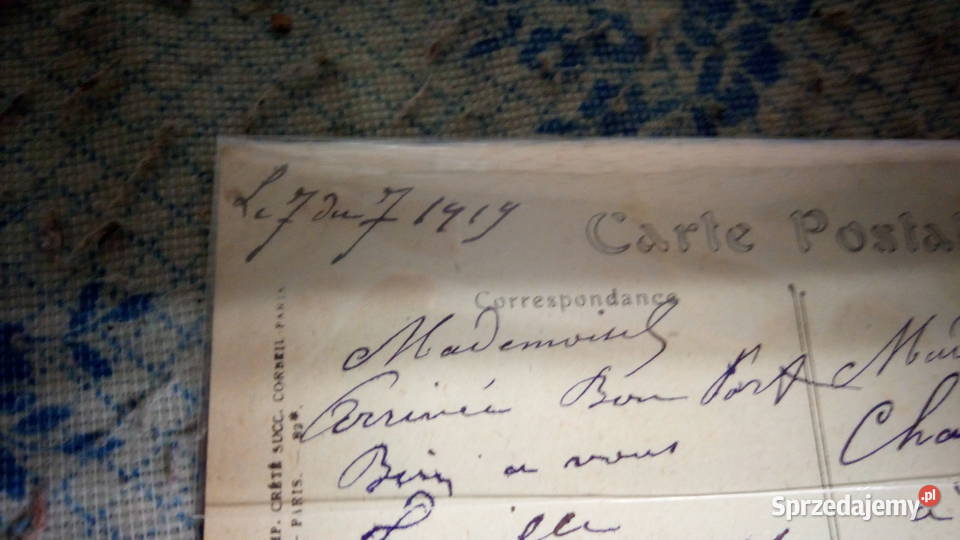 Le 7 du 7 1919
Carte Postal
Correspondance
Mademoisel
Arrivée Bon Port
Bien a vous
Mad
Cha
a
IMP. CRÉTÉ SUCC. CORBEIL-PARIS
PARIS. — 82*.
Sprzedajemy.pl